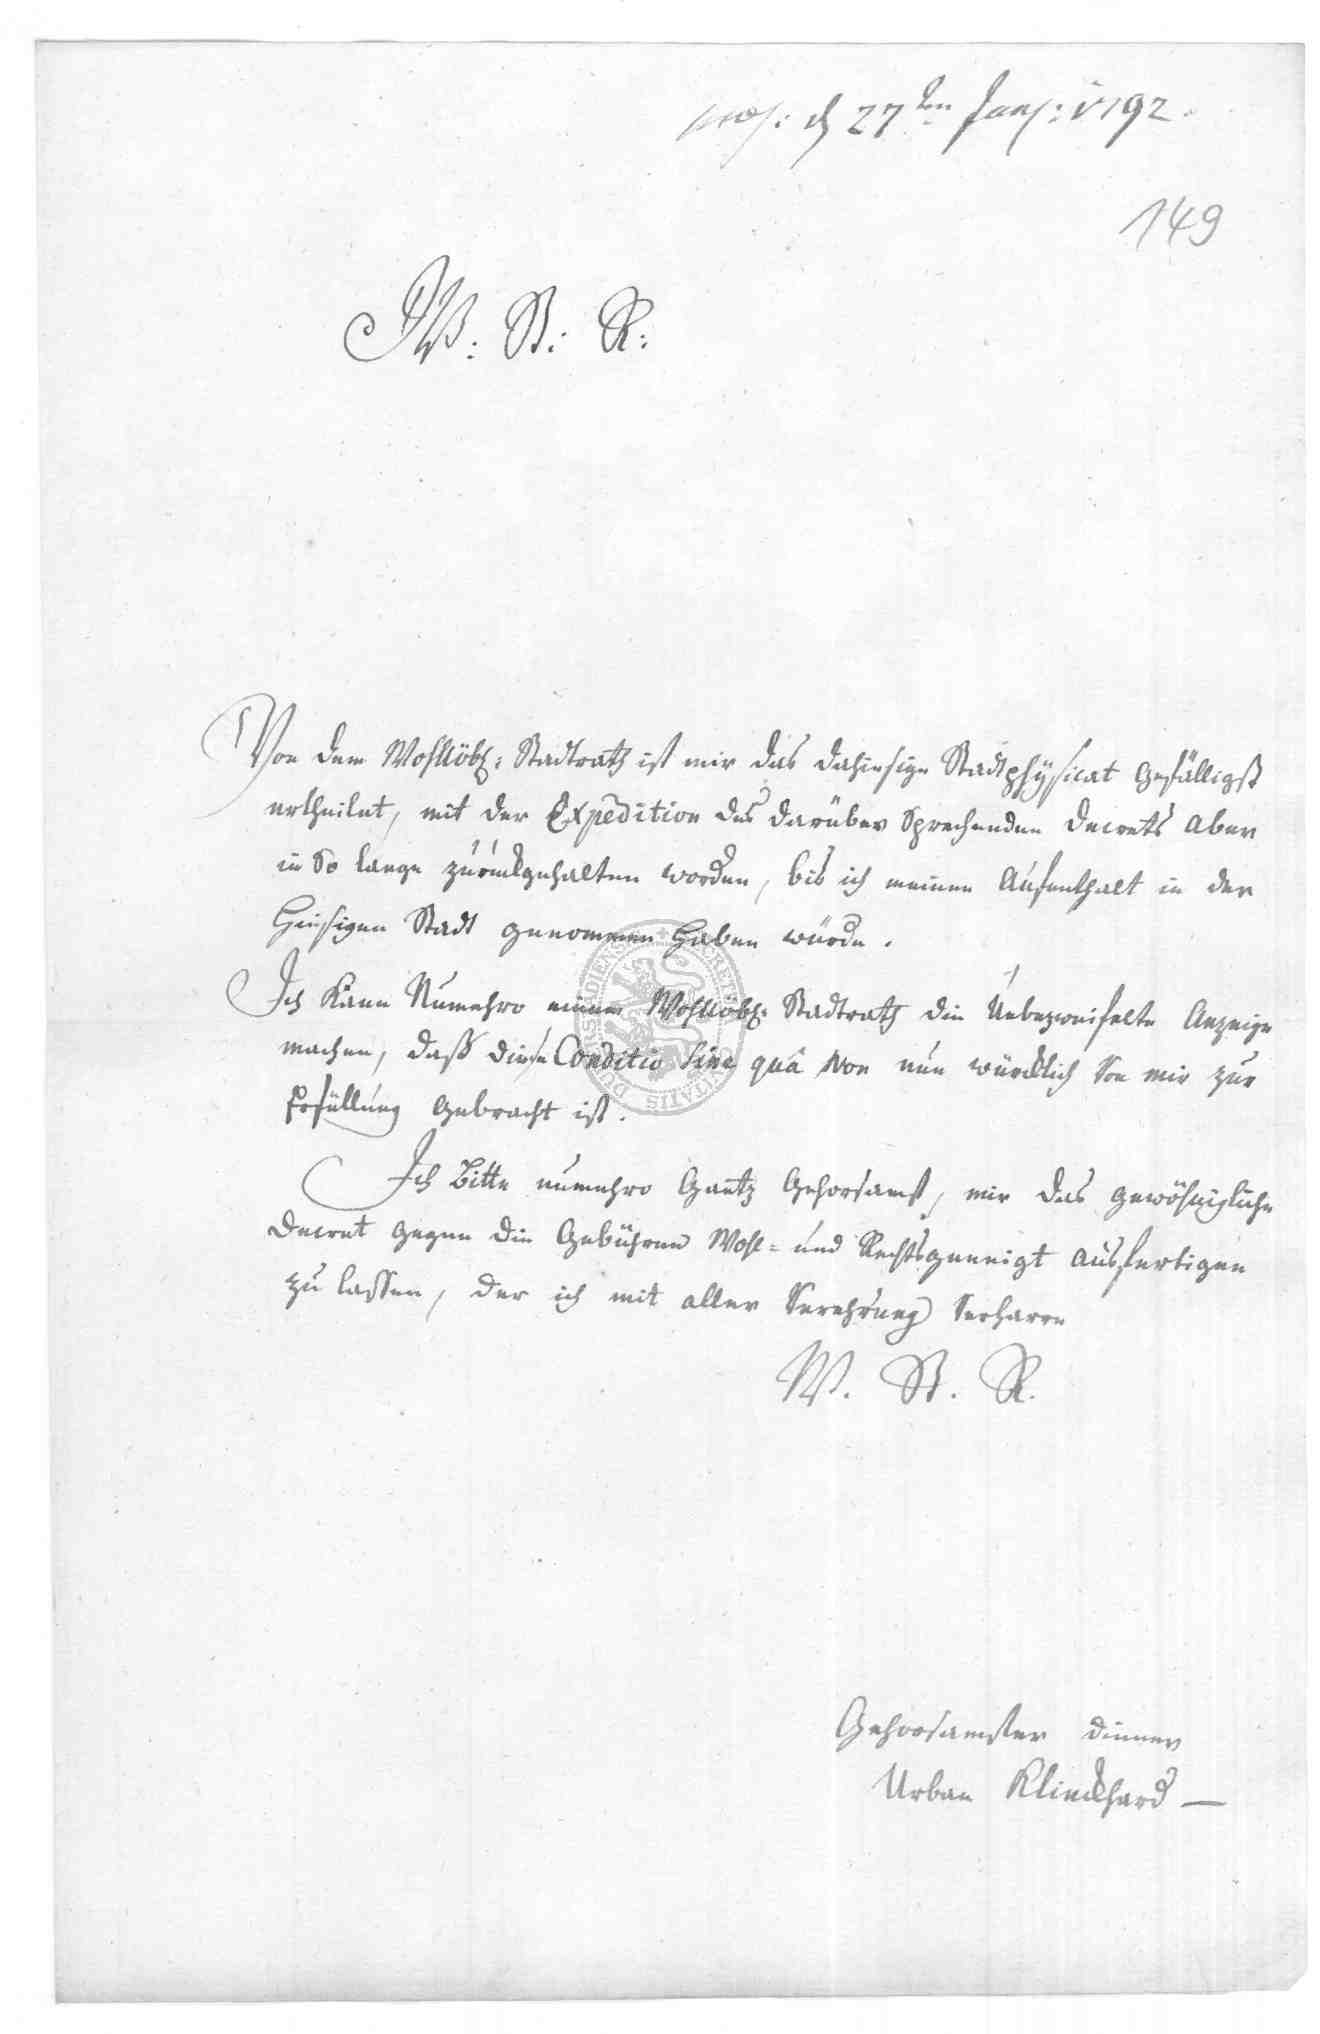 praes: d 27ten Janr: 1792.
149
W: St: R:
Von dem Wohllöbl: Stadtrath ist mir das dahiesige Stadtphÿsicat gefälligst
ertheilet, mit der Expedition des darüber sprechenden Decrets aber
in so lange zurückgehalten worden, bis ich meinen Aufenthalt in der
hiesigen Stadt genommen haben würde.
Ich kann Numehro einem Wohllöbl: Stadtrath die unbezweifelte Anzeige
machen, daß diese Conditio sine quâ Non nun würcklich von mir zur
Erfüllung gebracht ist.
Ich bitte numehro gantz gehorsamst, mir das gewöhnliche
Decret gegen die Gebühren Wohl- und Rechtsgeneigt ausfertigen
zu lassen, der ich mit aller Verehrung verharre
W. St. R.
Gehorsamster diener
Urban Klinckhard —